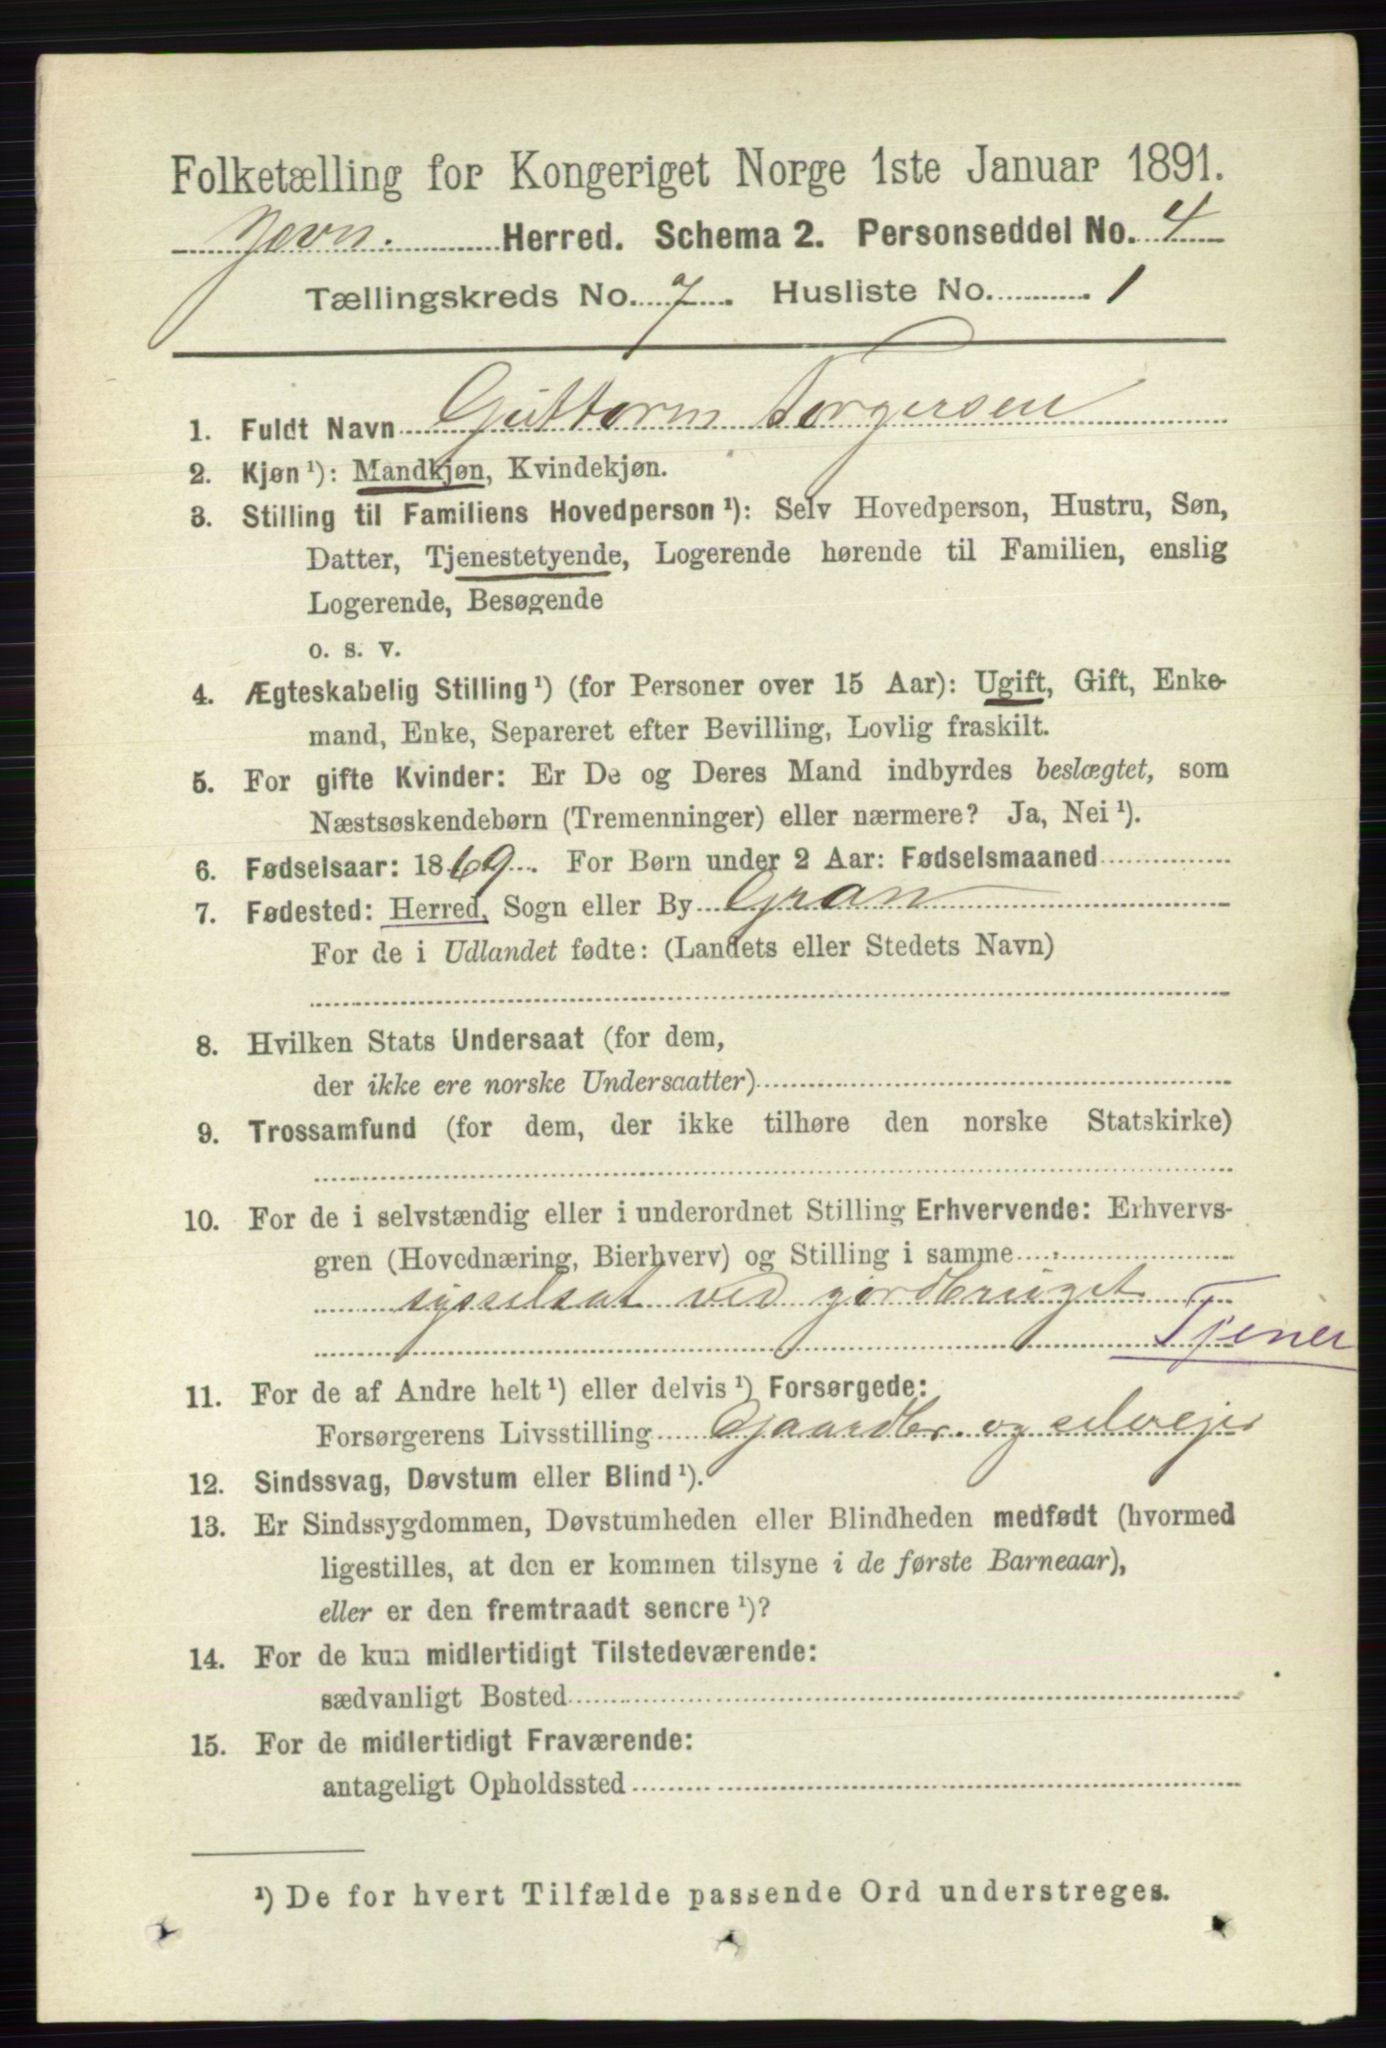 Folketælling for Kongeriget Norge 1ste Januar 1891.
Jevn. Herred. Schema 2. Personseddel No. 4
Tællingskreds No. 7. Husliste No. 1
1. Fuldt Navn Guttorm Torgersen
2. Kjøn ¹): Mandkjøn, Kvindekjøn.
3. Stilling til Familiens Hovedperson ¹): Selv Hovedperson, Hustru, Søn,
Datter, Tjenestetyende, Logerende hørende til Familien, enslig
Logerende, Besøgende
o. s. v.
4. Ægteskabelig Stilling ¹) (for Personer over 15 Aar): Ugift, Gift, Enke-
mand, Enke, Separeret efter Bevilling, Lovlig fraskilt.
5. For gifte Kvinder: Er De og Deres Mand indbyrdes beslægtet, som
Næstsøskendebørn (Tremenninger) eller nærmere? Ja, Nei ¹).
6. Fødselsaar: 1869. For Børn under 2 Aar: Fødselsmaaned
7. Fødested: Herred, Sogn eller By Gran
For de i Udlandet fødte: (Landets eller Stedets Navn)
8. Hvilken Stats Undersaat (for dem,
der ikke ere norske Undersaatter)
9. Trossamfund (for dem, der ikke tilhøre den norske Statskirke)
10. For de i selvstændig eller i underordnet Stilling Erhvervende: Erhvervs-
gren (Hovednæring, Bierhverv) og Stilling i samme
sysselsat ved gordbruget
Tjener
11. For de af Andre helt ¹) eller delvis ¹) Forsørgede:
Forsørgerens Livsstilling Gjaardbr. og selvejer
12. Sindssvag, Døvstum eller Blind ¹).
13. Er Sindssygdommen, Døvstumheden eller Blindheden medfødt (hvormed
ligestilles, at den er kommen tilsyne i de første Barneaar),
eller er den fremtraadt senere ¹)?
14. For de kun midlertidigt Tilstedeværende:
sædvanligt Bosted
15. For de midlertidigt Fraværende:
antageligt Opholdssted
¹) De for hvert Tilfælde passende Ord understreges.